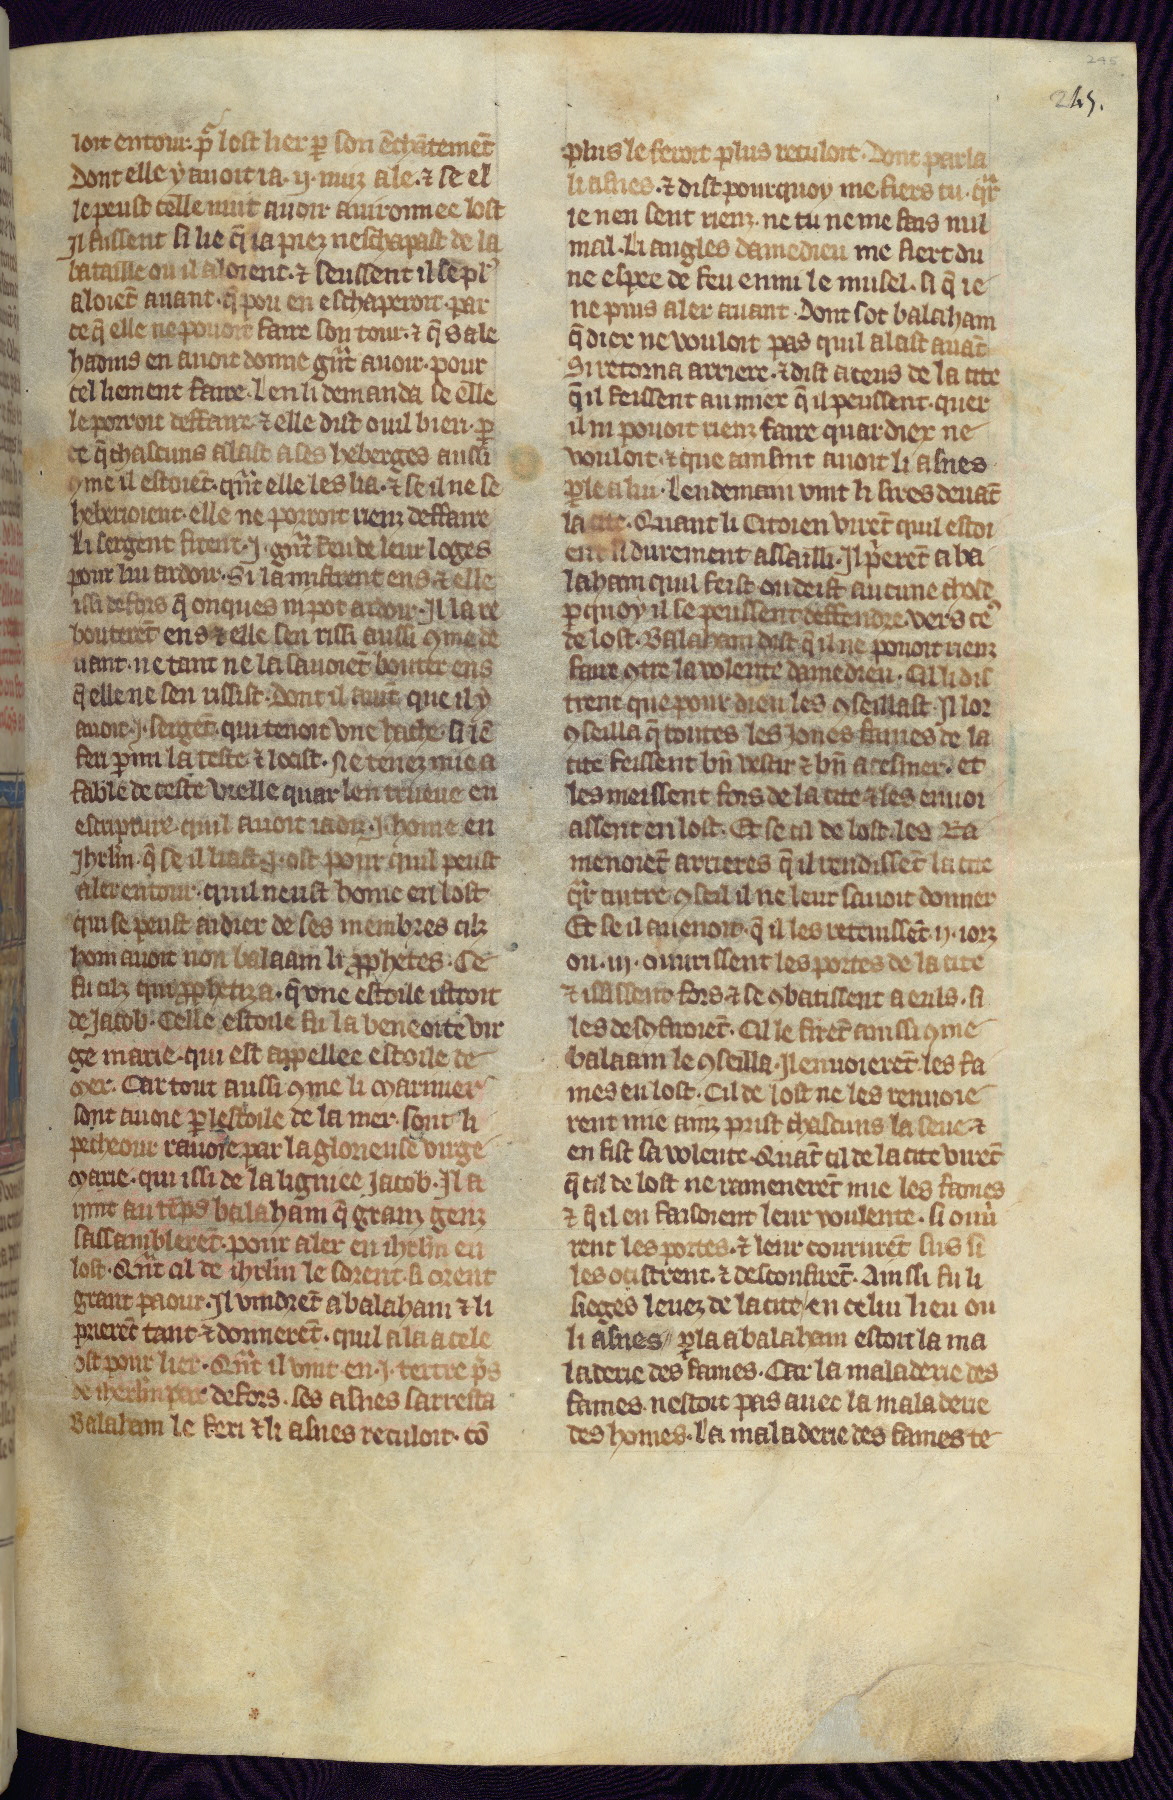 245
245.
loit entour. pͣ lost lier ꝑ son ēchātemēt
Dont elle y auoit ia .ij. nuiz ale. ⁊ se el
le peust celle nuit auoir auironnee lost
Il fussent si lie q̄ ia piez neschapast de la
bataille ou il aloient. ⁊ seussent il se plꝰ
aloiēt auant. q̄ pou en eschaperoit. par
ce q̄ elle ne pouoit faire son tour. ⁊ q̄ sale
hadins en auoit donne gͣnt auoir. pour
cel liement faire. Len li demanda se elle
le porroit deffaire ⁊ elle dist ouil bien. ꝑ
ce q̄ chascuns alast a ses heberges aussi
ꝯme il estoiēt. qͣnt elle les lia. ⁊ se il ne se
heberioient. elle ne porroit rienz deffaire
Li sergent firent .j. gͣnt feu de leur loges
pour lui ardoir. Si la mistrent ens. ⁊ elle
issi de fors q̄ onques ni pot ardoir. Il la re
bouterēt ens ⁊ elle sen rissi aussi ꝯme de
uant. ne tant ne la sauoiēt bouter ens
q̄ elle ne sen rissist. dont il auīt que il y
auoit .j. sergēt qui tenoit vne hache. si lē
feri ꝑmi la teste ⁊ locist. Ne tenez mie a
fable de ceste vielle quar len trueue en
escripture. quil auoit iadiz .j. home en
Jhrlm̄. q̄ se il liast .j. ost pour quil peust
aler entour. quil neust home en lost
qui se peust aidier de ses membres cilz
hom auoit non balaam li ꝓphetes. Ce
fu cilz qui ꝓphetiza. q̄ vne estoile istroit
de Jacob. Celle estoile fu la beneoite vir
ge marie. qui est appellee estoile de
Mer. Car tout aussi ꝯme li Marinier
sont auoie ꝑ lestoile de la mer. sont li
pecheour rauoie par la glorieuse virge
Marie. qui issi de la ligniee Jacob. Il a
uint au tēps balaham q̄ granz genz
sassamblerēt. pour aler en ihrlm̄ en
lost. Qͣnt cil de ihrlm̄ le sorent. si orent
grant paour. Il vindrēt a balaham ⁊ li
prierēt tant ⁊ donnerēt. quil ala a cele
ost pour lier. Qͣnt il vint en .j. tertre ꝑs
de iherlm̄ par defors. ses asnes sarresta
Balaham le feri ⁊ li asnes reculoit. cō
plus le feroit plus reculoit. Dont parla
li asnes. ⁊ dist pourquoy me fiers tu. qͣr
ie nen sent rienz. ne tu ne me fais nul
mal. Li angles damedieu me fiert du
ne espee de feu enmi le musel. si q̄ ie
ne puis aler auant. Dont sot balaham
q̄ diex ne vouloit pas quil alast auāt
Si retorna arriere. ⁊ dist a ceus de la cite
q̄ il feissent au miex q̄ il peussent. quer
il ni pouoit rienz faire quar diex ne
vouloit. ⁊ que ainsint auoit li asnes
ꝑle a lui. Lendemain vint li sires deuāt
la cite. Quant li Citoien virēt quil estoi
ent si durement assailli. Il pͥerēt a ba
laham quil feist ou deist aucune chose
ꝑ quoy il se peussent deffendre. vers ceꝰ
de lost. Balaham dist q̄ il ne pouoit rienz
faire ꝯtre la volente damedieu. Cil li dis
trent que pour dieu les ꝯseillast. Il lor
ꝯseilla q̄ toutes les Jones fames de la
cite feissent bn̄ vestir ⁊ bn̄ acesmer. et
les meissent fors de la cite. ⁊ les enuoi
assent en lost. Et se cil de lost. les Ra
menoiēt arrieres q̄ il rendissēt la cite
qͣr autre ꝯseil il ne leur sauoit donner
Et se il auenoit. q̄ il les retenissēt .ij. iorz
ou .iij. ouurissent les portes de la cite
⁊ ississent fors. ⁊ se ꝯbatissent a euls. si
les descōfiroiēt. Cil le firēt ainssi ꝯme
balaam le ꝯseilla. Il enuoierēt les fa
mes en lost. Cil de lost ne les renuoie
rent mie ainz prist chascuns la seue. ⁊
en fist sa volente. Quāt cil de la cite virēt
q̄ cil de lost ne ramenerēt mie les fames
⁊ q̄ il en faisoient leur voulente. si ouū
rent les portes. ⁊ leur coururēt sus si
les ocistrent. ⁊ desconfirēt. Ainssi fu li
sieges leuez de la cite en celui lieu ou
li asnes ꝑla a balaham estoit la ma
laderie des fames. Car la maladerie des
fames. nestoit pas auec la maladerie
des homes. La maladerie des fames te